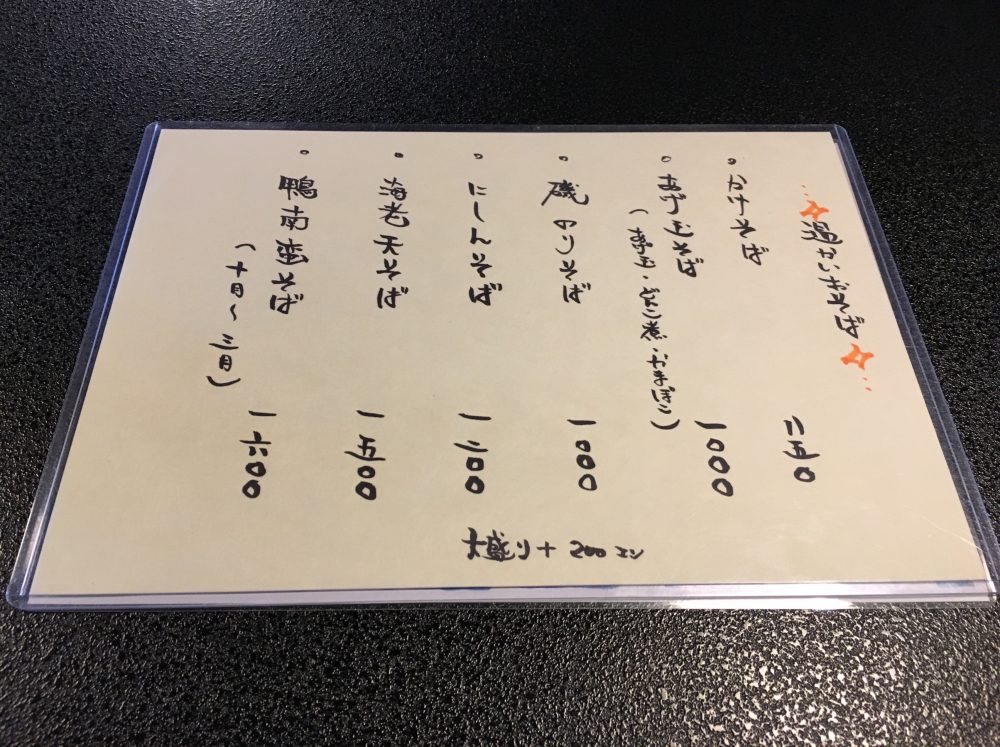 温かいおそば
・かけそば 八五〇
・あげ玉そば 一〇〇〇
(揚玉・どんこ煮・かまぼこ)
・磯のりそば 一〇〇〇
・にしんそば 一三〇〇
・海老天そば 一五〇〇
・鴨南蛮そば 一六〇〇
(十月〜三月)
大盛り+200エン